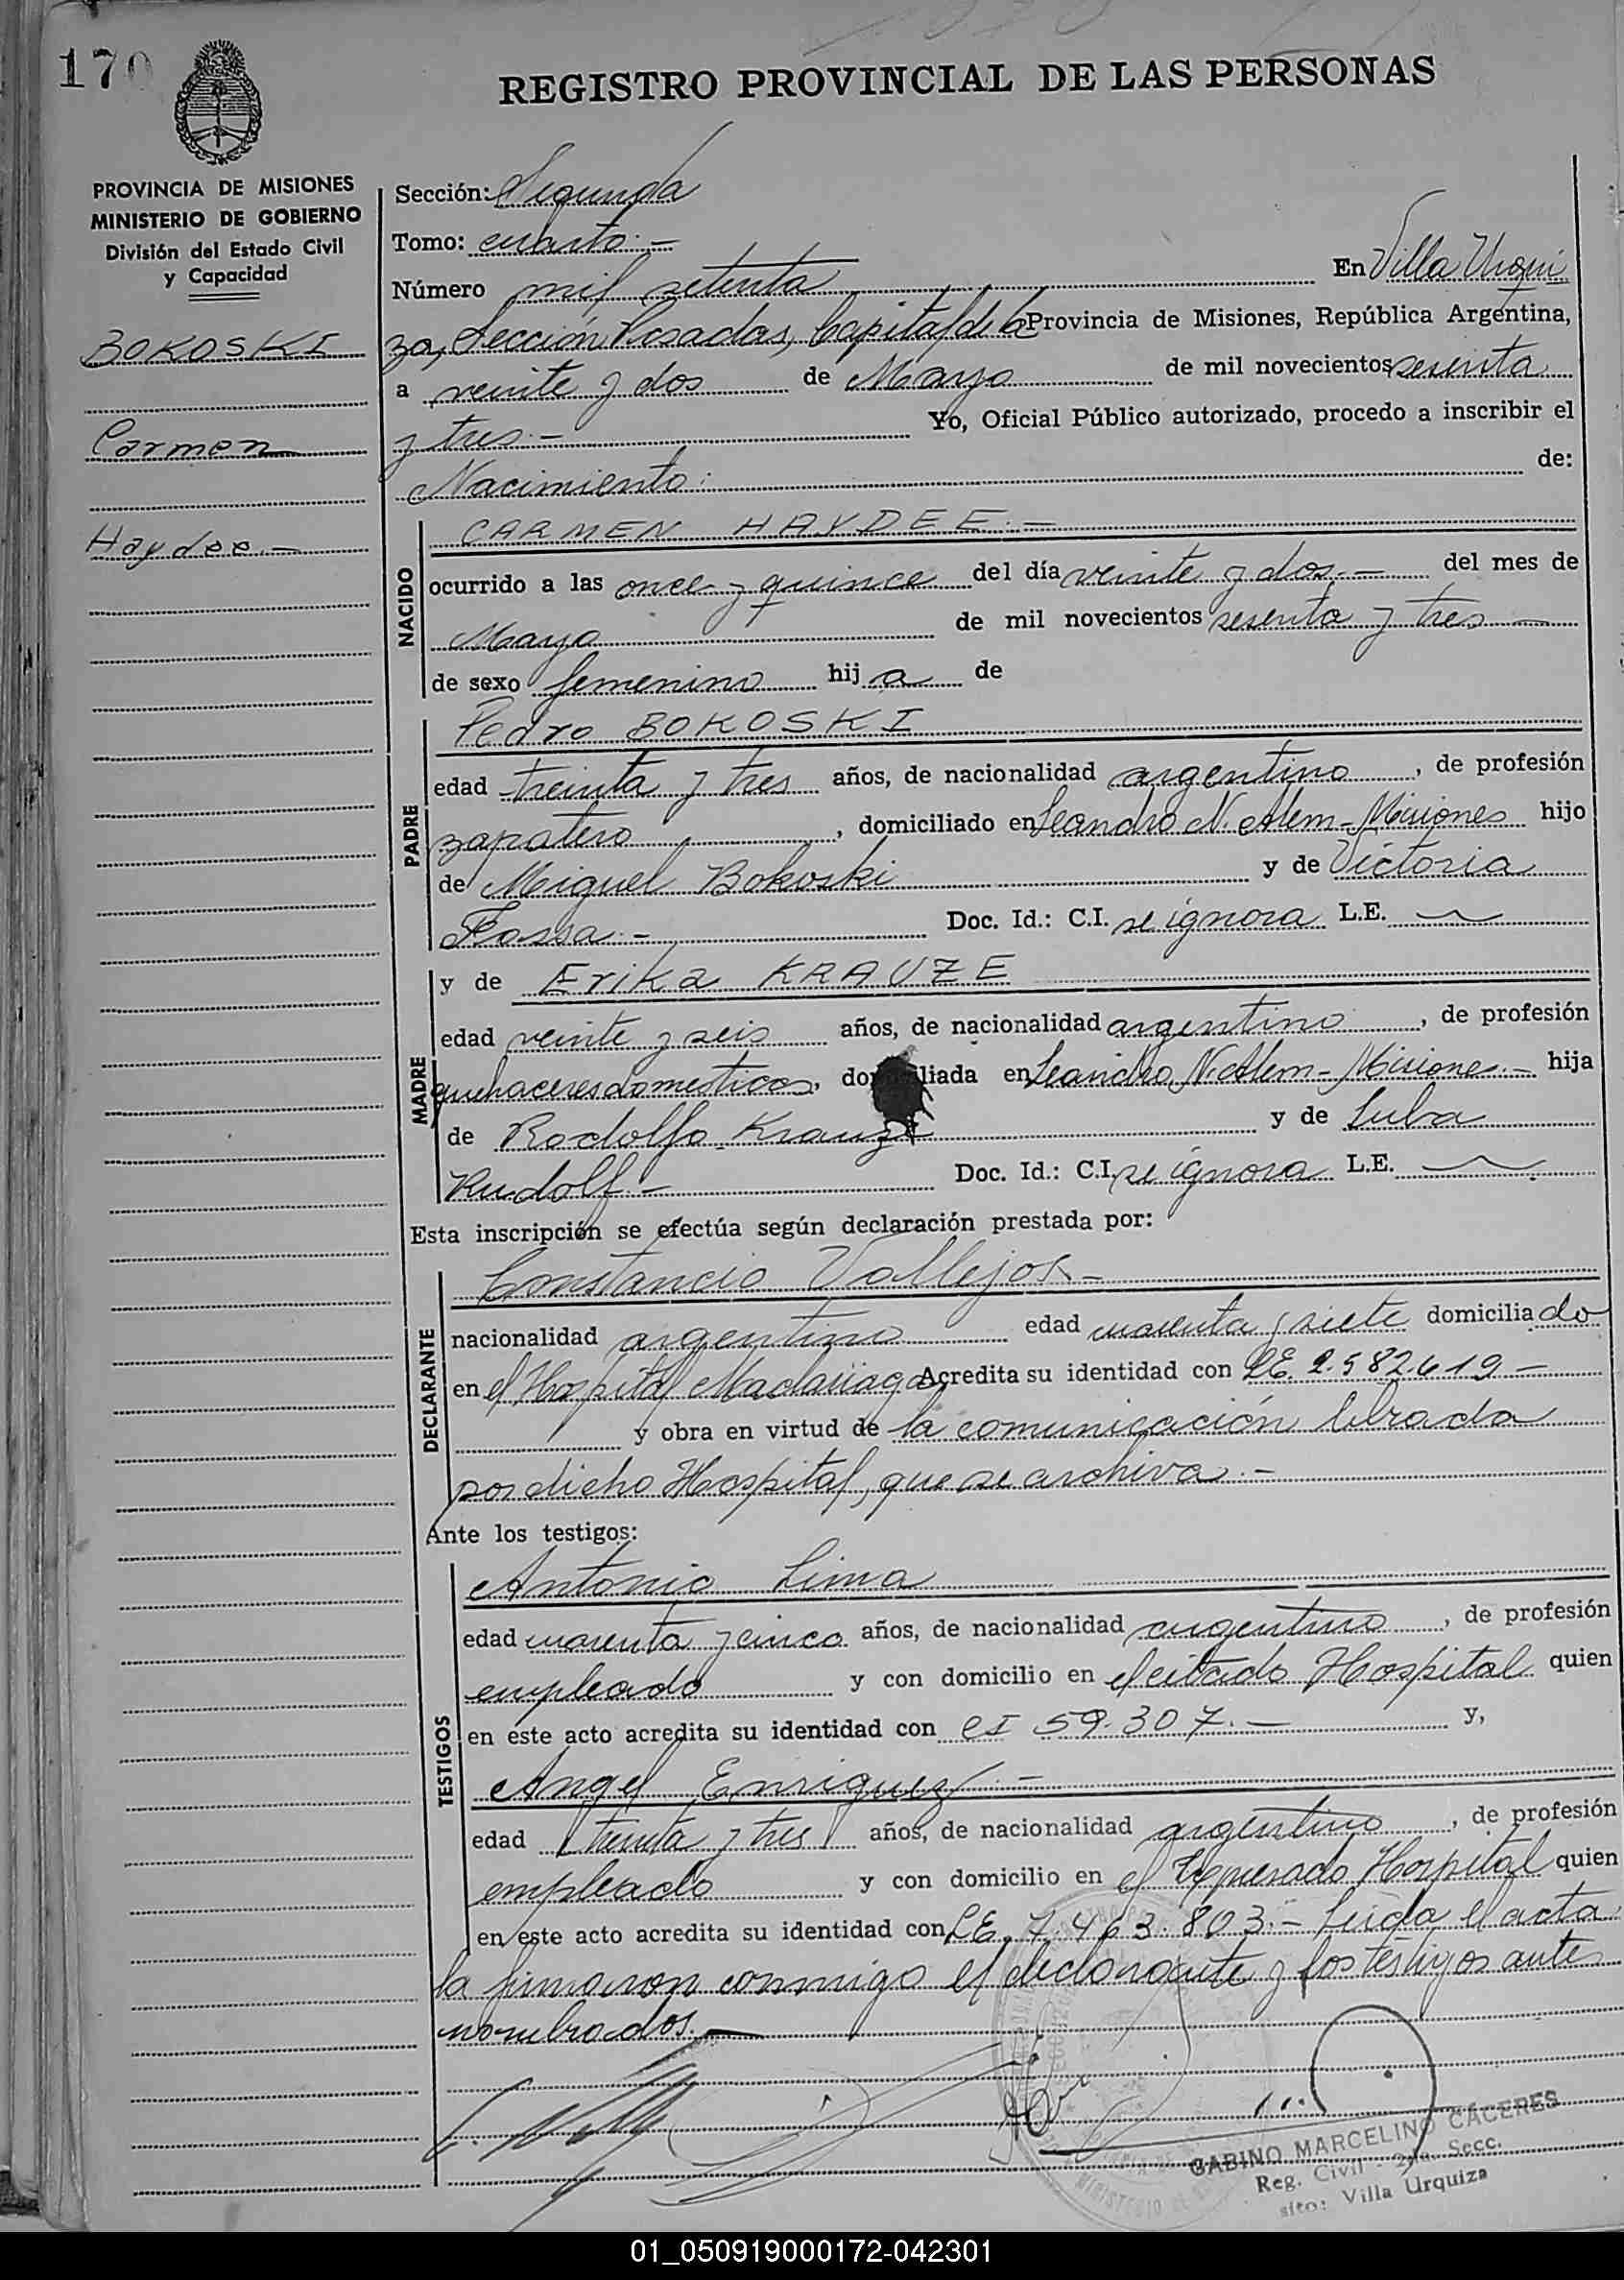 170
REGISTRO PROVINCIAL DE LAS PERSONAS
PROVINCIA DE MISIONES
MINISTERIO DE GOBIERNO
División del Estado Civil
y Capacidad
BOKOSKI
Carmen
Haydee.-
Sección: Segunda
Tomo: cuarto.-
Número mil setenta En Villa Urqui
za, Sección Posadas, Capital de la Provincia de Misiones, República Argentina,
a veinte y dos de Mayo de mil novecientos sesenta
y tres.- Yo, Oficial Público autorizado, procedo a inscribir el
Nacimiento: de:
NACIDO
CARMEN HAYDEE.-
ocurrido a las once y quince del día veinte y dos.- del mes de
Mayo de mil novecientos sesenta y tres -
de sexo femenino hij a de
PADRE
Pedro BOKOSKI
edad treinta y tres años, de nacionalidad argentino, de profesión
zapatero, domiciliado en Leandro N. Alem - Misiones hijo
de Miguel Bokoski y de Victoria
Flossa.- Doc. Id.: C.I. se ignora L.E.
MADRE
y de Erika KRAUZE
edad veinte y seis años, de nacionalidad argentino, de profesión
quehaceres domesticos, domiciliada en Leandro N. Alem - Misiones.- hija
de Rodolfo Krauze y de Luba
Rudolf.- Doc. Id.: C.I. se ignora L.E.
Esta inscripción se efectúa según declaración prestada por:
DECLARANTE
Constancio Vallejos.-
nacionalidad argentino edad cuarenta y siete domiciliado
en el Hospital Madariaga Acredita su identidad con LE. 2.582.619 -
y obra en virtud de la comunicación librada
por dicho Hospital, que se archiva.-
Ante los testigos:
TESTIGOS
Antonio Lima
edad cuarenta y cinco años, de nacionalidad argentino, de profesión
empleado y con domicilio en el citado Hospital quien
en este acto acredita su identidad con CI 59.307.- y,
Angel Enriquez.-
edad treinta y tres años, de nacionalidad argentino, de profesión
empleado y con domicilio en el expresado Hospital quien
en este acto acredita su identidad con LE. 7.463.803.- Leída el acta
la firmaron conmigo el declarante y los testigos antes
nombrados.-
GABINO MARCELINO CACERES
Reg. Civil - 2da. Secc.
sito: Villa Urquiza
01_050919000172-042301